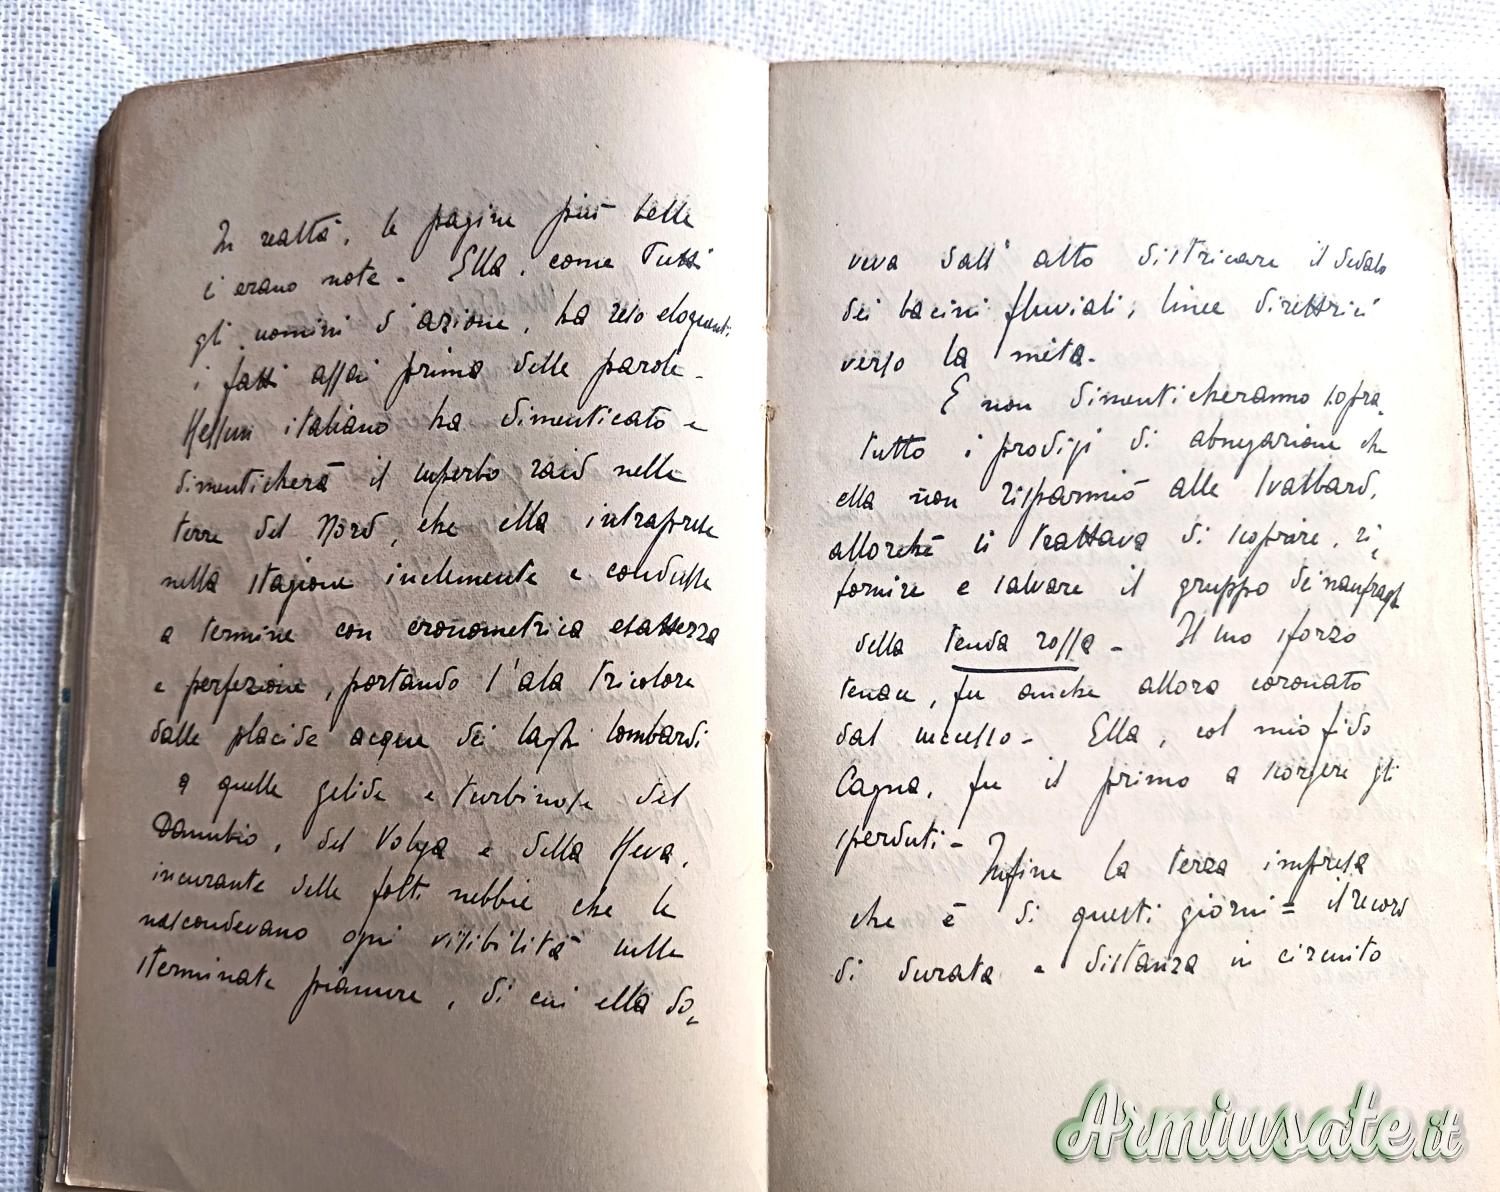 In realtà, le pagine più belle
ci erano note - Ella, come tutti
gli uomini d'azione, ha reso eloquenti
i fatti assai prima delle parole -
Nessun italiano ha dimenticato e
dimenticherà il superbo raid nelle
terre del Nord, che ella intraprese
nella stagione inclemente e condusse
a termine con cronometrica esattezza
e perfezione, portando l'ala tricolore
dalle placide acque dei laghi lombardi
a quelle gelide e turbinose del
Danubio, del Volga e della Neva,
incurante delle folti nebbie che le
nascondevano ogni visibilità sulle
sterminate pianure, di cui ella do,
veva dall'alto districare il dedalo
dei bacini fluviali, linee direttrici
verso la mèta -
E non dimenticheranno sopra,
tutto i prodigi di abnegazione che
ella non risparmiò alle Svalbard,
allorchè si trattava di scoprire, ri,
fornire e salvare il gruppo dei naufraghi
della tenda rossa - Il suo sforzo
tenace, fu anche allora coronato
dal successo - Ella, col mio fido
Cagna, fu il primo a scorgere gli
sperduti -
Infine la terza impresa
che è di questi giorni = il record
di durata e distanza in circuito
Armiusate.it